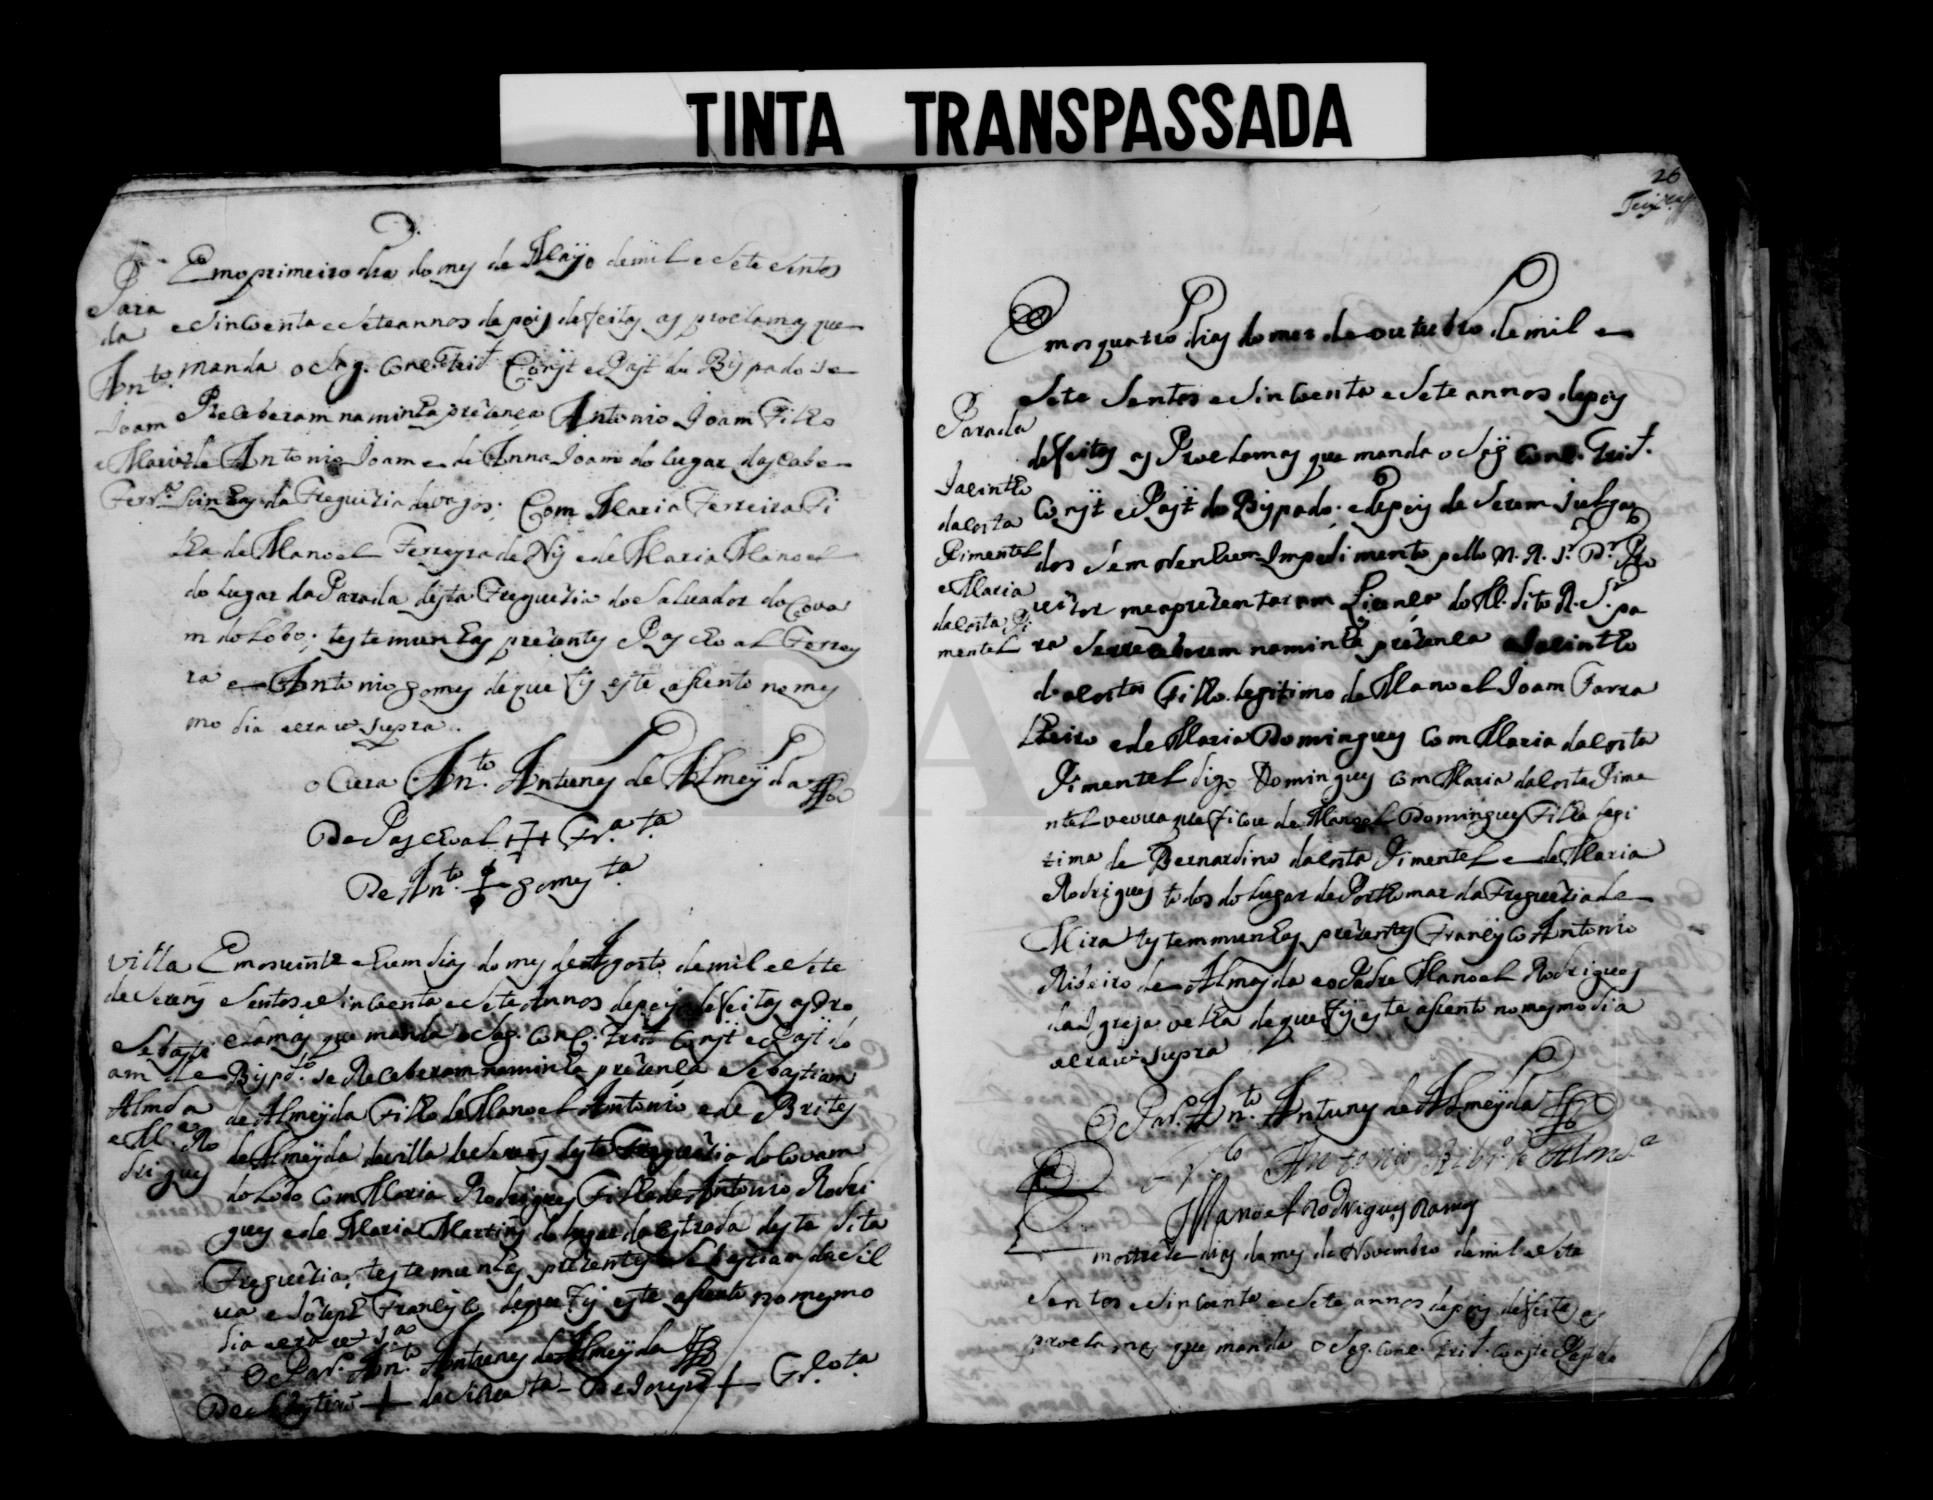 TINTA TRANSPASSADA
Em o primeiro dia do mes de Mayo de mil e Sete Sentos
e Sincoenta e Sete annos depois de feitas as proclamas que
manda o Sag. Conc. Trid. Const e Past du Bispado se
Receberam na minha prezença Antonio Joam Filho
de Antonio Joam e de Anna Joam do lugar das cabe
da Freguezia de Vagos; Com Maria Ferreira Fi
lha de Manoel Ferreyra de e de Maria Manoel
do lugar da Parada desta Freguezia do Saluador do Cova
m do Lobo; testemunhas prezentes Paschoal Ferrey
ra e Antonio gomes de que fis este asento no mes
mo dia era ut supra.
Para
da
Anto.
Joam
e Maria
Ferra.
o Cura Anto. Antunes de Almeyda
De Paschoal Fra. ta
De Anto. gomes ta
villa
de
Sebasti
am de
Almda
e Ma. Ro
drigues
Em os vinte e hum dias do mes de Agosto de mil e Sete
Sentos e Sincoenta e Sete Annos depois de feitas as Pro
clamas que manda o Sag. Conc. Trid Const e Past do
Bispdo. se Receberam na minha prezença Sebastiam
de Almeyda Filho de Manoel Antonio e de Brites
de Almeyda da villa de desta Freguezia do Covam
do Lobo Com Maria Rodrigues Filha de Antonio Rodri
gues e de Maria Martins do lugar da estrada desta dita
Freguezia; testemunhas prezentes Sebastiam da Sil
va e Francisco de que fis este asento no mesmo
dia era ut sa
O Par. Anto. Antunes de Almeyda
De Sebastiam da Silva ta De ta.
26
Em os quatro dias do mes de outubro de mil e
Sete Sentos e Sincoenta e Sete annos depois
de feitas as Proclamas que manda o Sag Conc. Trid.
Const e Past do Bispado; e depois de Serem Julga
dos Sem nenhum Impedimento pello M. R. Sr. Dr. Pro
vizor me aprezentaram Licença do M. dito R. Sr. pa
ra Se receberem na minha prezença Jacintho
da Costa Filho legitimo de Manoel Joam Farra
lheiro e de Maria Domingues Com Maria da Costa
Pimentel digo Domingues Com Maria da Costa Pime
ntel veuva que ficou de Manoel Domingues Filha legi
tima de Bernardino da Costa Pimentel e de Maria
Rodrigues todos do lugar de Porthomar da Freguezia de
Mira testemunhas prezentes Francisco Antonio
Ribeiro de Almeyda e o Padre Manoel Rodrigues
da Igreja velha de que fis este asento no mesmo dia
era ut supra
Parada
Jacintho
da Costa
Pimentel
e Maria
da Costa Pi
mentel
O Par. Anto. Antunes de Almeyda
Antonio Ribro. de Almda
Manoel Rodrigues Ramos
Em os treze dias do mes de Novembro de mil e Sete
Sentos e Sincoenta e Sete annos depois de feitas as
proclamas que manda o Sag. Conc. Trid. Const e Past do
ADA